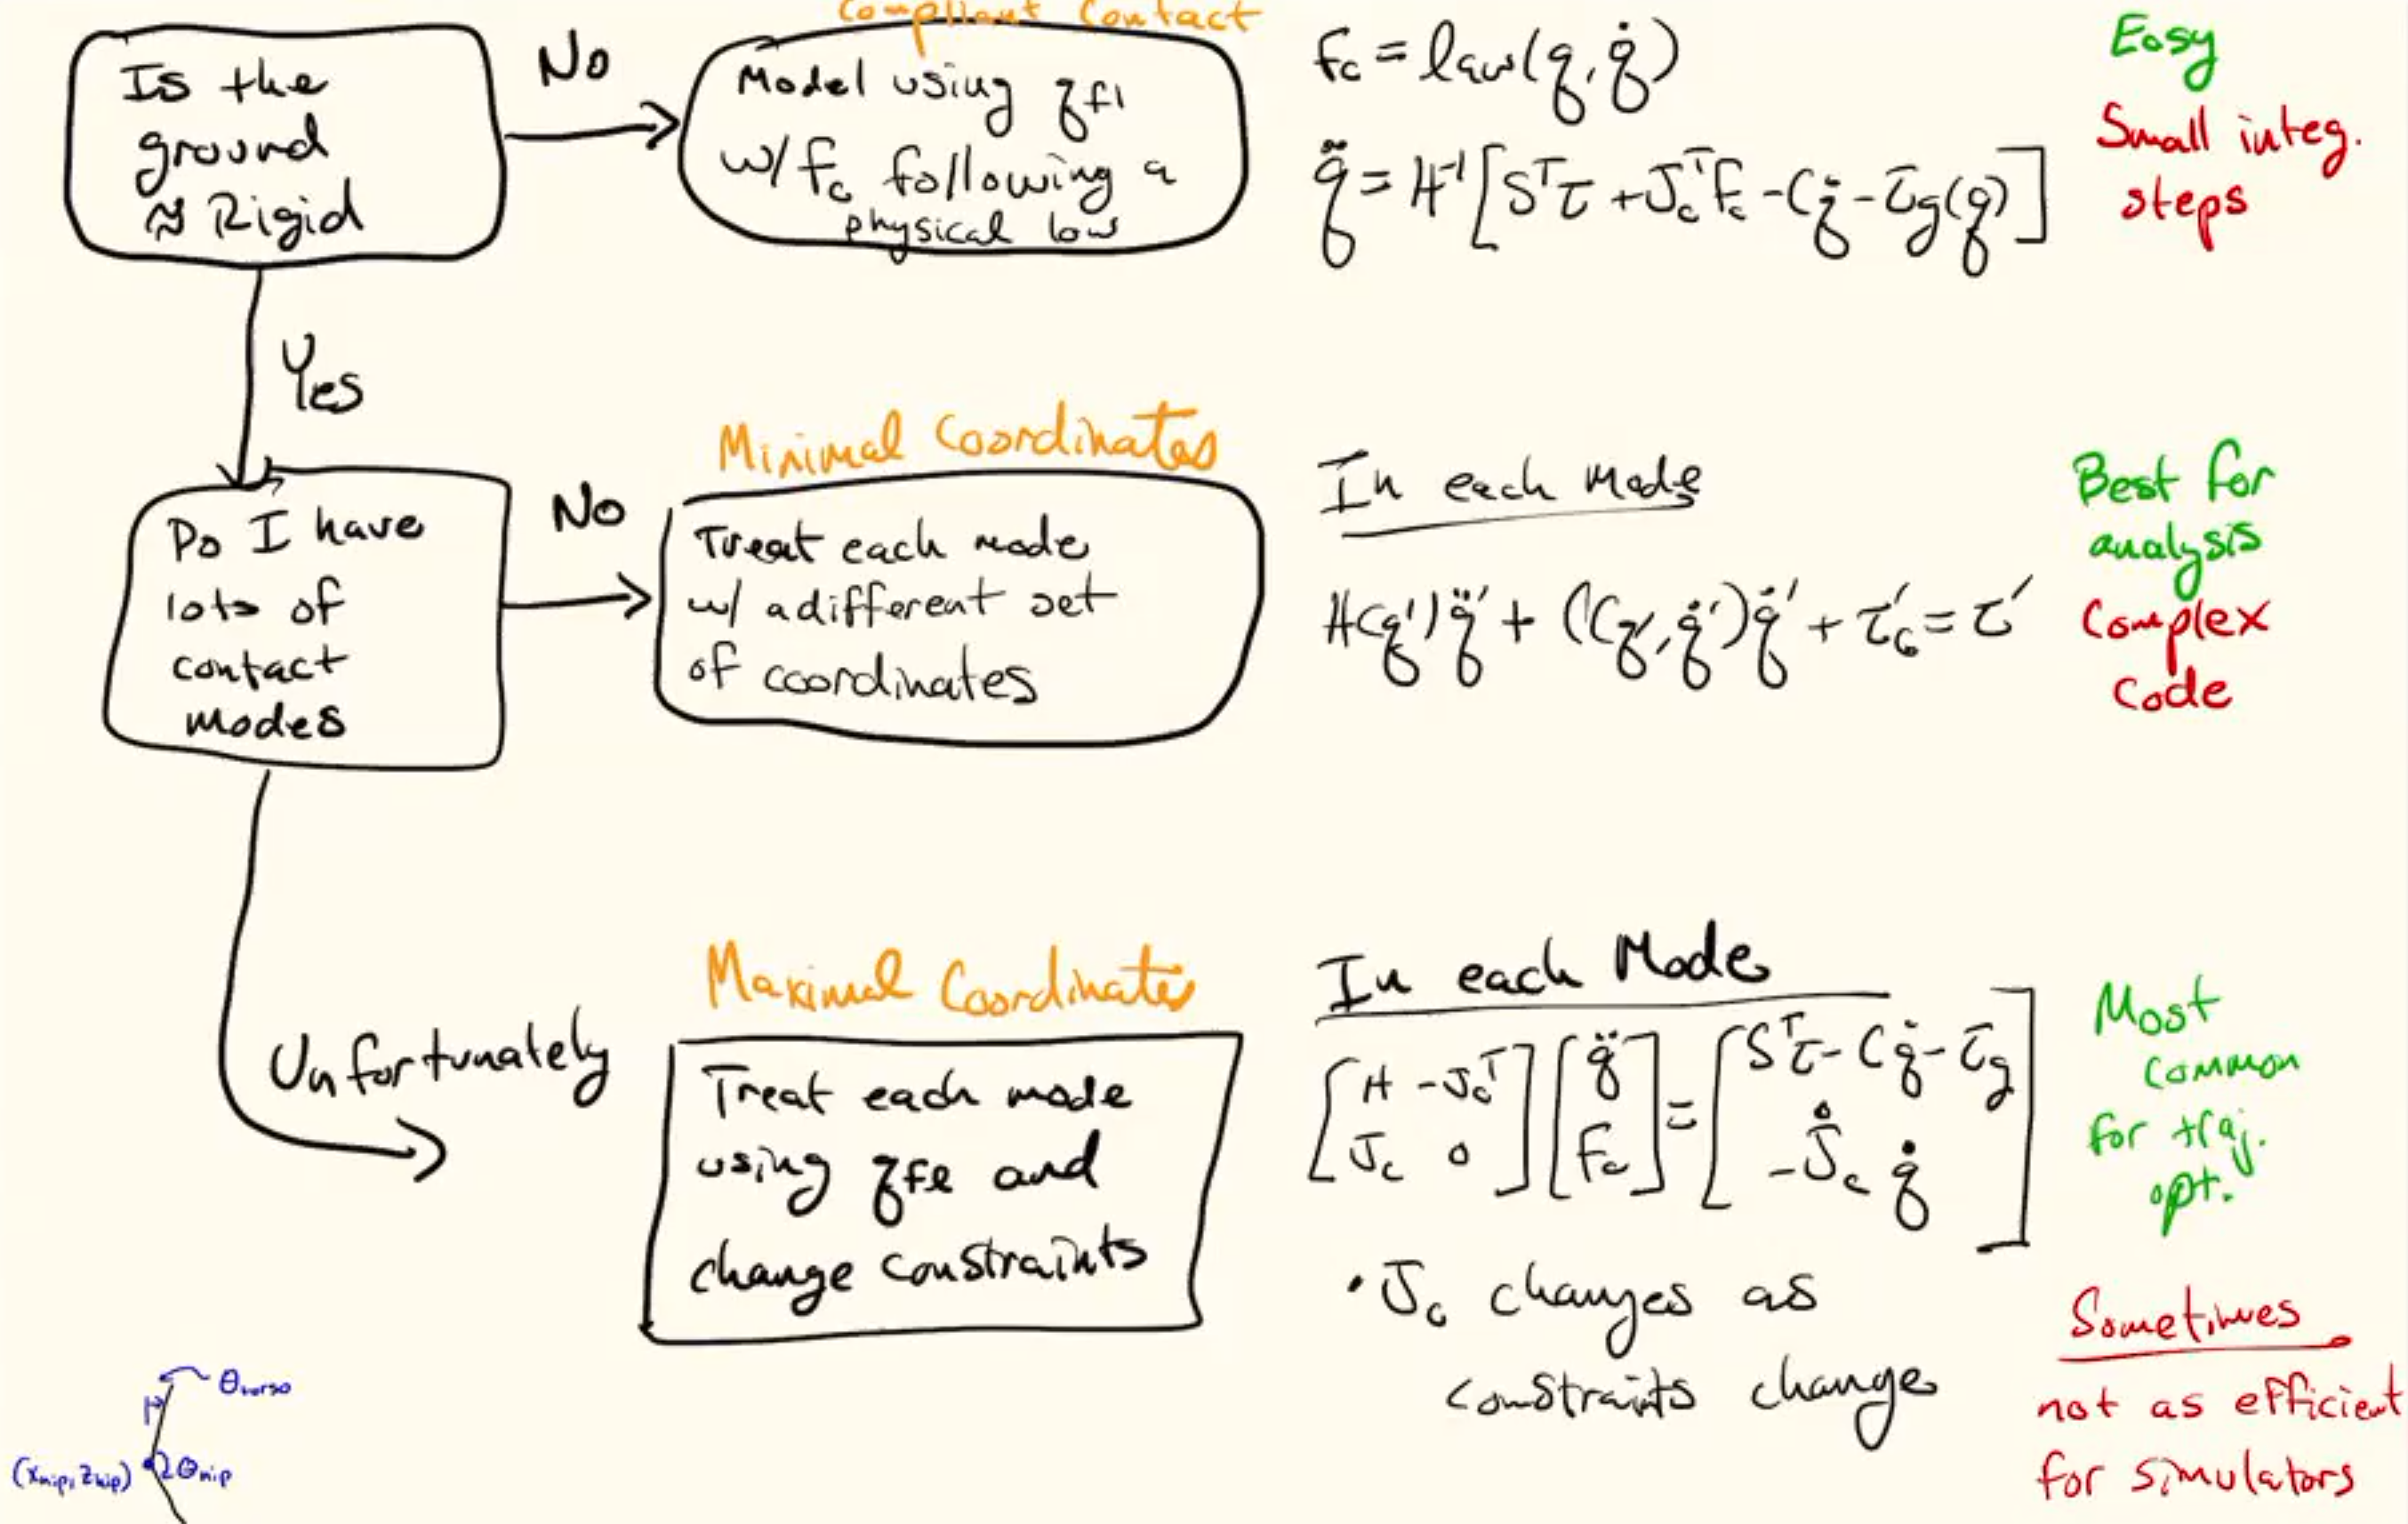 Compliant Contact
Is the
ground
≈ Rigid
No
Model using q_fl
w/ F_c following a
physical law
F_c = law(q, q̇)
q̈ = H⁻¹[SᵀΤ + J_cᵀF_c - Cq̇ - τ_g(q)]
Easy
Small integ.
steps
Yes
Do I have
lots of
contact
modes
No
Minimal Coordinates
Treat each mode
w/ a different set
of coordinates
In each Mode
H(q')q̈' + C(q', q̇')q̇' + τ'_G = τ'
Best for
analysis
Complex
Code
Unfortunately
Maximal Coordinates
Treat each mode
using q_fl and
change constraints
In each Mode
[H -J_cᵀ; J_c 0] [q̈; F_c] = [Sᵀτ - Cq̇ - τ_g; -J̇_c q̇]
• J_c changes as
constraints change
Most
common
for traj.
opt.
Sometimes
not as efficient
for simulators
θ_torso
(x_hip, z_hip)
θ_hip